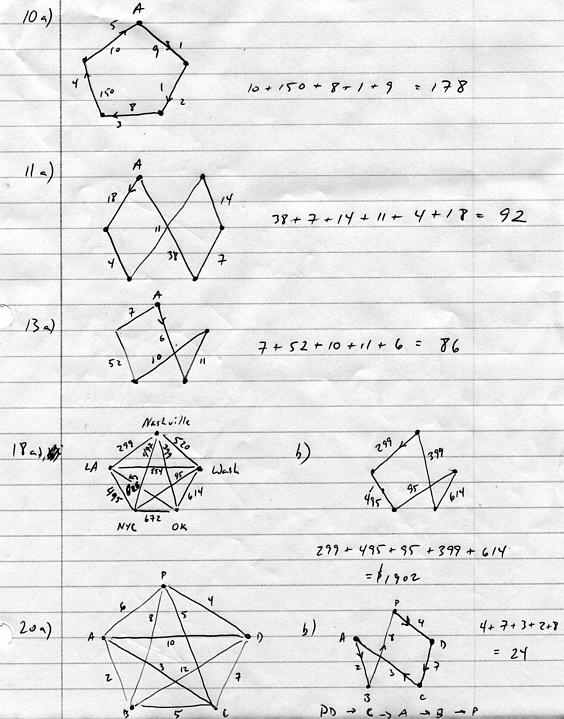 10a)
A
5
10
9
3
1
4
150
1
8
2
3
10 + 150 + 8 + 1 + 9 = 178
11a)
A
18
14
11
4
38
7
38 + 7 + 14 + 11 + 4 + 18 = 92
13a)
A
7
6
52
10
11
7 + 52 + 10 + 11 + 6 = 86
18a)
Nashville
299
399
520
LA
854
Wash
95
495
614
NYC
672
OK
b)
299
399
495
95
614
299 + 495 + 95 + 399 + 614
= $1902
20a)
P
6
8
5
4
A
10
D
2
3
12
7
B
5
C
b)
P
4
A
8
D
2
3
7
B
C
4 + 7 + 3 + 2 + 8
= 24
PD → C → A → B → P